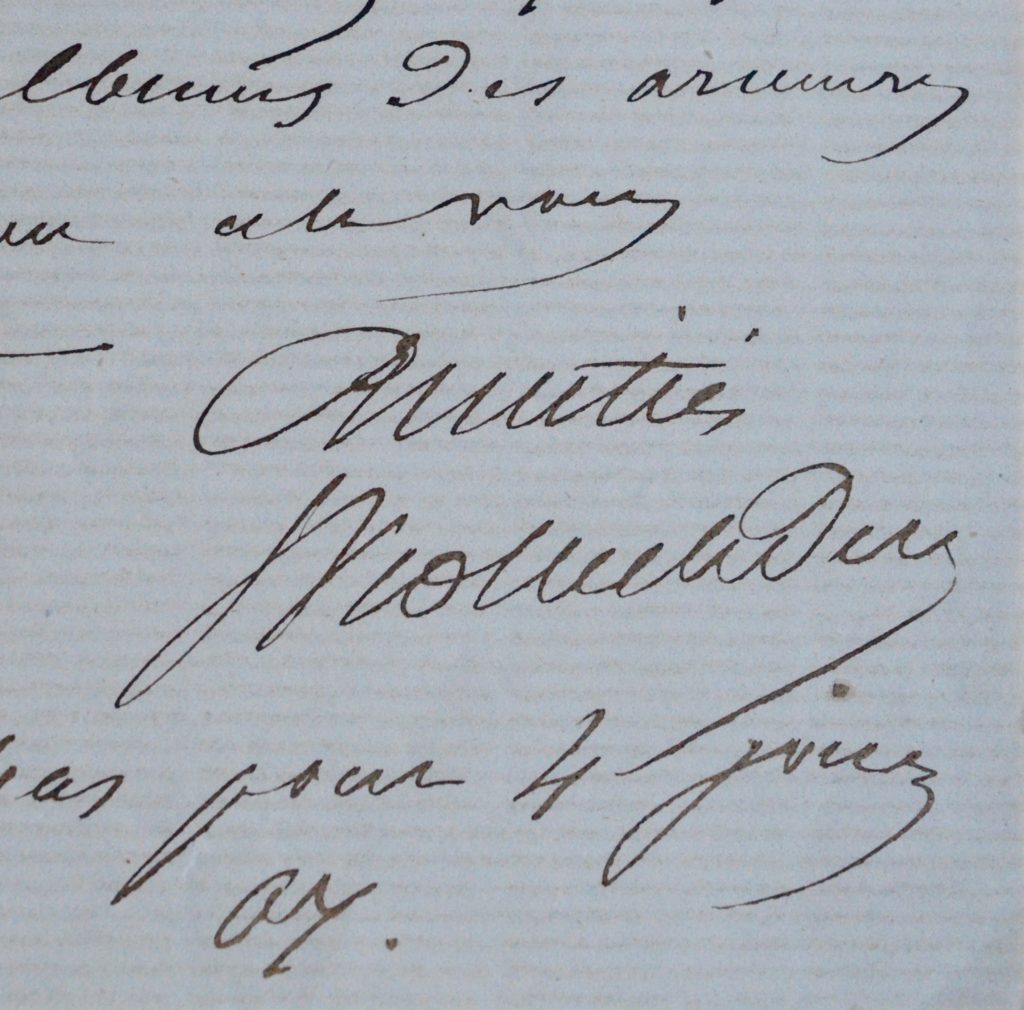 albums des armures
à vous
Amitiés
Viollet le Duc
pas pour 4 jours